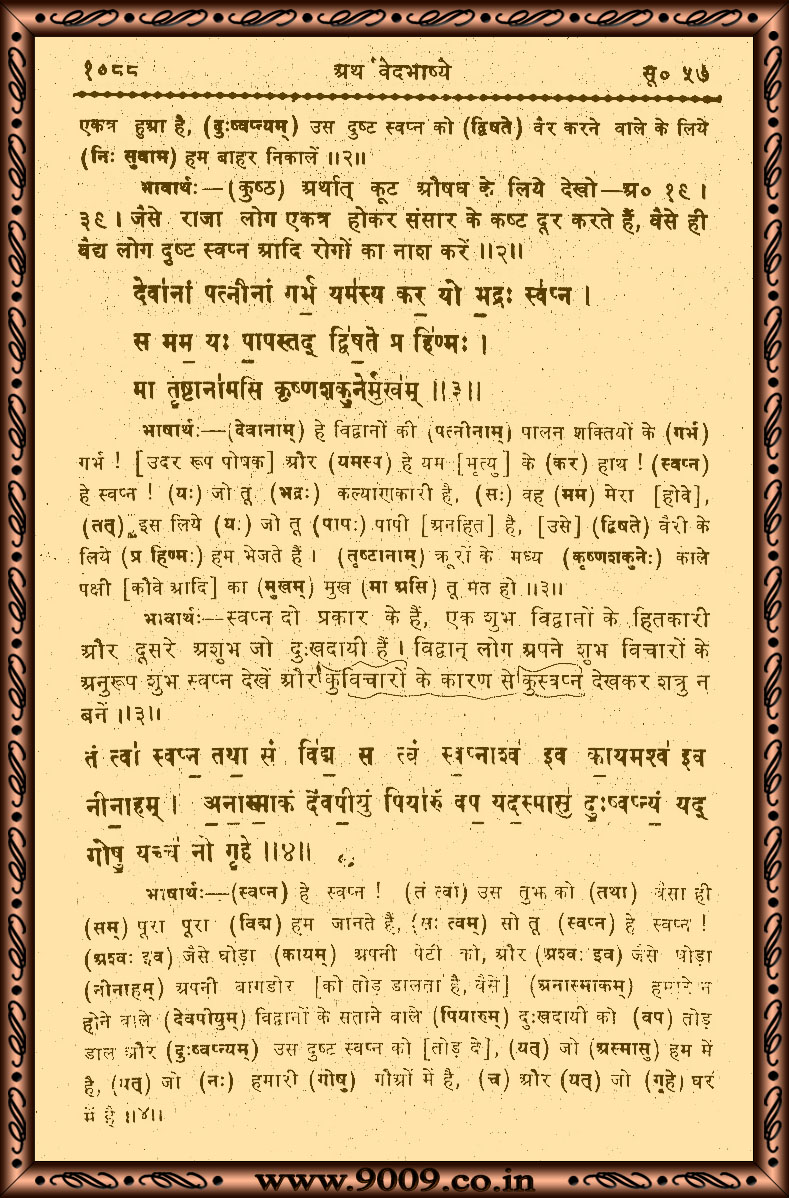 १०८८ अथर्ववेदभाष्ये सू० ५७
एकत्र हुआ है, (दुःष्वप्न्यम्) उस दुष्ट स्वप्न को (द्विषते) वैर करने वाले के लिये
(निः सुवाम) हम बाहर निकालें ॥२॥
भावार्थः—(कुष्ठ) अर्थात् कूट औषध के लिये देखो—अ० १९ ।
३९ । जैसे राजा लोग एकत्र होकर संसार के कष्ट दूर करते हैं, वैसे ही
वैद्य लोग दुष्ट स्वप्न आदि रोगों का नाश करें ॥२॥
देवा॑नां पत्नीनां गर्भ॒ यम॑स्य कर॒ यो भ॒द्रः स्व॑प्न ।
स मम॒ यः पा॒पस्तद् द्वि॑ष॒ते प्र हि॑ण्मः ।
मा तृ॒ष्टाना॑मसि कृष्णशकु॒नेर्मुख॑म् ॥३॥
भाषार्थः—(देवानाम्) हे विद्वानों की (पत्नीनाम्) पालन शक्तियों के (गर्भ)
गर्भ ! [उदर रूप पोषक] और (यमस्य) हे यम [मृत्यु] के (कर) हाथ ! (स्वप्न)
हे स्वप्न ! (यः) जो तू (भद्रः) कल्याणकारी है, (सः) वह (मम) मेरा [होवे],
(तत्) इस लिये (यः) जो तू (पापः) पापी [अनहित] है, [उसे] (द्विषते) वैरी के
लिये (प्र हिण्मः) हम भेजते हैं । (तृष्टानाम्) क्रूरों के मध्य (कृष्णशकुनेः) काले
पक्षी [कौवे आदि] का (मुखम्) मुख (मा असि) तू मत हो ॥३॥
भावार्थः—स्वप्न दो प्रकार के हैं, एक शुभ विद्वानों के हितकारी
और दूसरे अशुभ जो दुःखदायी हैं । विद्वान् लोग अपने शुभ विचारों के
अनुरूप शुभ स्वप्न देखें और कुविचारों के कारण से कुस्वप्न देखकर शत्रु न
बनें ॥३॥
तं त्वा॑ स्वप्न॒ तथा॒ सं वि॑द्म॒ स त्वं स्व॒प्नाश्व॑ इव का॒यमश्व॑ इव
नीना॒हम् । अ॒ना॒स्मा॒कं दे॑वपी॒युं पिया॑रुं वप॒ यद॒स्मासु॑ दु॒ःष्वप्न्यं॒ यद्
गोषु॒ यच्च॑ नो गृ॒हे ॥४॥
भाषार्थः—(स्वप्न) हे स्वप्न ! (तं त्वा) उस तुझ को (तथा) वैसा ही
(सम्) पूरा पूरा (विद्म) हम जानते हैं, (सः त्वम्) सो तू (स्वप्न) हे स्वप्न !
(अश्वः इव) जैसे घोड़ा (कायम्) अपनी पेटी को, और (अश्वः इव) जैसे घोड़ा
(नीनाहम्) अपनी बागडोर [को तोड़ डालता है, वैसे] (अनास्माकम्) हमारे न
होने वाले (देवपीयुम्) विद्वानों के सताने वाले (पियारुम्) दुःखदायी को (वप) तोड़
डाल और (दुःष्वप्न्यम्) उस दुष्ट स्वप्न को [तोड़ दे], (यत्) जो (अस्मासु) हम में
है, (यत्) जो (नः) हमारी (गोषु) गौओं में है, (च) और (यत्) जो (गृहे) घर
में है ॥४॥
www.9009.co.in